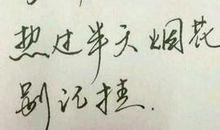 热过半天烟花
别记挂.